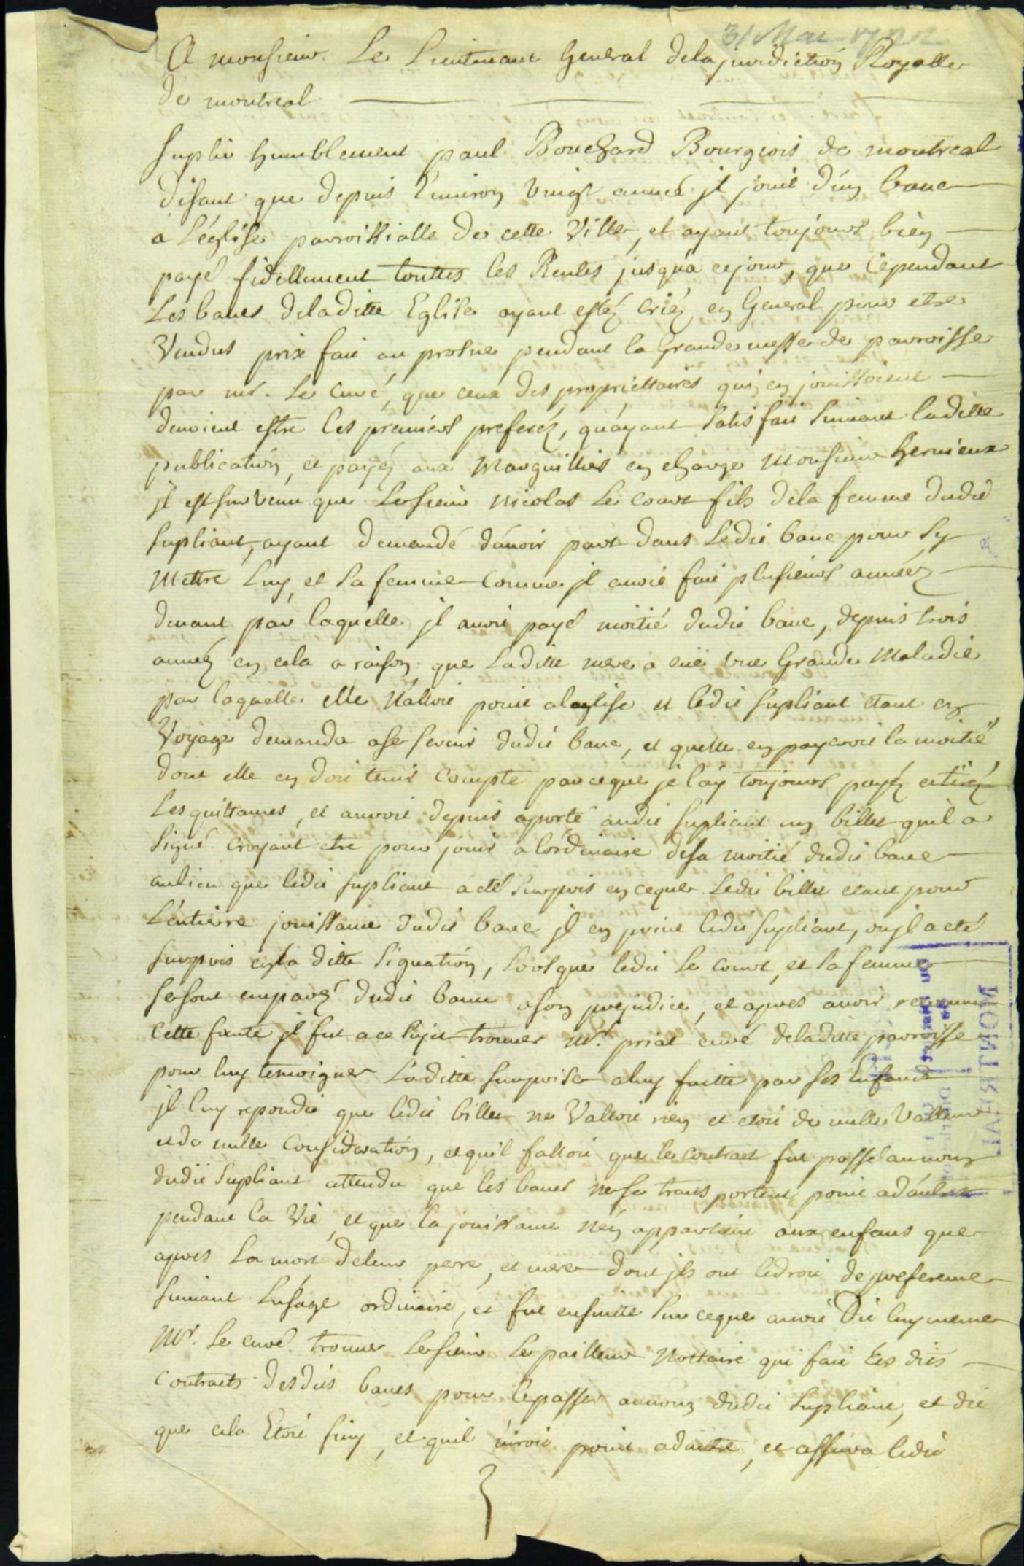 31 Mai
A monsieur. Le Lieutenant General dela jurediction Royalle
de montreal
Suplie humblement paul Bouchard Bourgeois de montreal
disant que depuis Environ vingt anneé jl jouit d'un banc
a L'église parroissialle de cette Ville, et ayant toujours bien
payé fidellement touttes les Rentes jusqua cejour, que cependant
Les bancs deladitte Eglise ayant esté criéz en General pour etre
Vendus prix fait au prosne pendant la Grande messe de parroisse
par mr. Le curé, que ceux des propriettaires qui en jouissoient
devoient estre les premiers preferéz, qu'ayant satisfait suivant laditte
publication, et payéz aux Marguilliers en charge Monsieur hervieux
jl est survenu que Lesieur nicolas Le Cour fils dela femme dudit
supliant, ayant demandé d'avoir part dans Ledit banc pour Sy
Mettre Luy, et sa femme comme jl avoit fait plusieurs anneéz
devant par laquelle jl avoit payé moitié dudit banc, depuis trois
anneéz en cela a raison que Laditte mere a eüe une Grande Maladie
par laquelle elle n'alloit point aleglise et ledit supliant etant en
Voyage demanda ase servir dudit banc, et quelle en payeroit la moitié
dont elle en doit tenir compte parceque je l'ay toujours payéz et tiréz
Les quittances, et auroit depuis aporté audit supliant un billet quil a
signé croyant etre pour jouir a lordinaire desa moitié dudit banc
aulieu que ledit supliant a eté surpris en ceque Ledit billet etant pour
L'entiere jouissance dudit banc jl en prive ledit supliant, ou jl a eté
surpris en la ditte signation, Lorsque ledit Le Cour, et sa femme
sesont emparéz dudit banc ason prejudice, et apres avoir reconnu
cette faute jl fut a ce sujet trouver Mr. priat curé deladitte parroisse
pour luy temoigner Laditte surprise aluy faitte par ses Enfans
jl luy repondit que ledit billet ne Valloit rien et etoit de nulle Valleur
et de nulle consideration, et qu'il falloit que le contract fut passé au nom
dudit supliant attendu que les bancs ne se transportent point ad'autres
pendant la Vie, et que la jouissance n'en appartient aux enfans que
apres La mort deleur pere, et mere dont jls ont ledroit de preference
suivant Lusage ordinaire, et fut ensuitte sur ceque avoit Dit luy meme
Mr. Le curé trouver Lesieur Le pailleur Nottaire qui fait Les dits
Contracts desdits bancs pour le passer aunom dudit supliant, et dit
que cela Etoit finy, et quil n'iroit point ad'autre, et assura ledit
MONTREAL